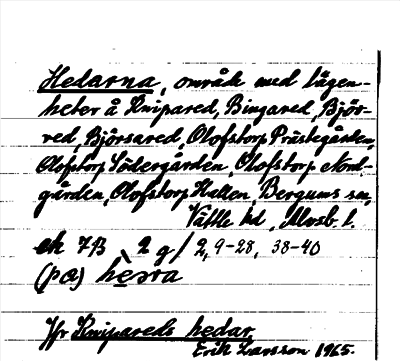 Hedarna, område med lägen-
heter å Knipared, Bingared, Björ-
red, Björsared, Olofstorp Prästegården,
Olofstorp Södergården, Olofstorp Nord-
gården, Olofstorp Hallen, Bergums sn,
Vättle hd, Älvsb. l.
ek 7B 2 g / 2, 9-28, 38-40
(på)
Jfr Knipareds hedar
Erik Larsson 1965.